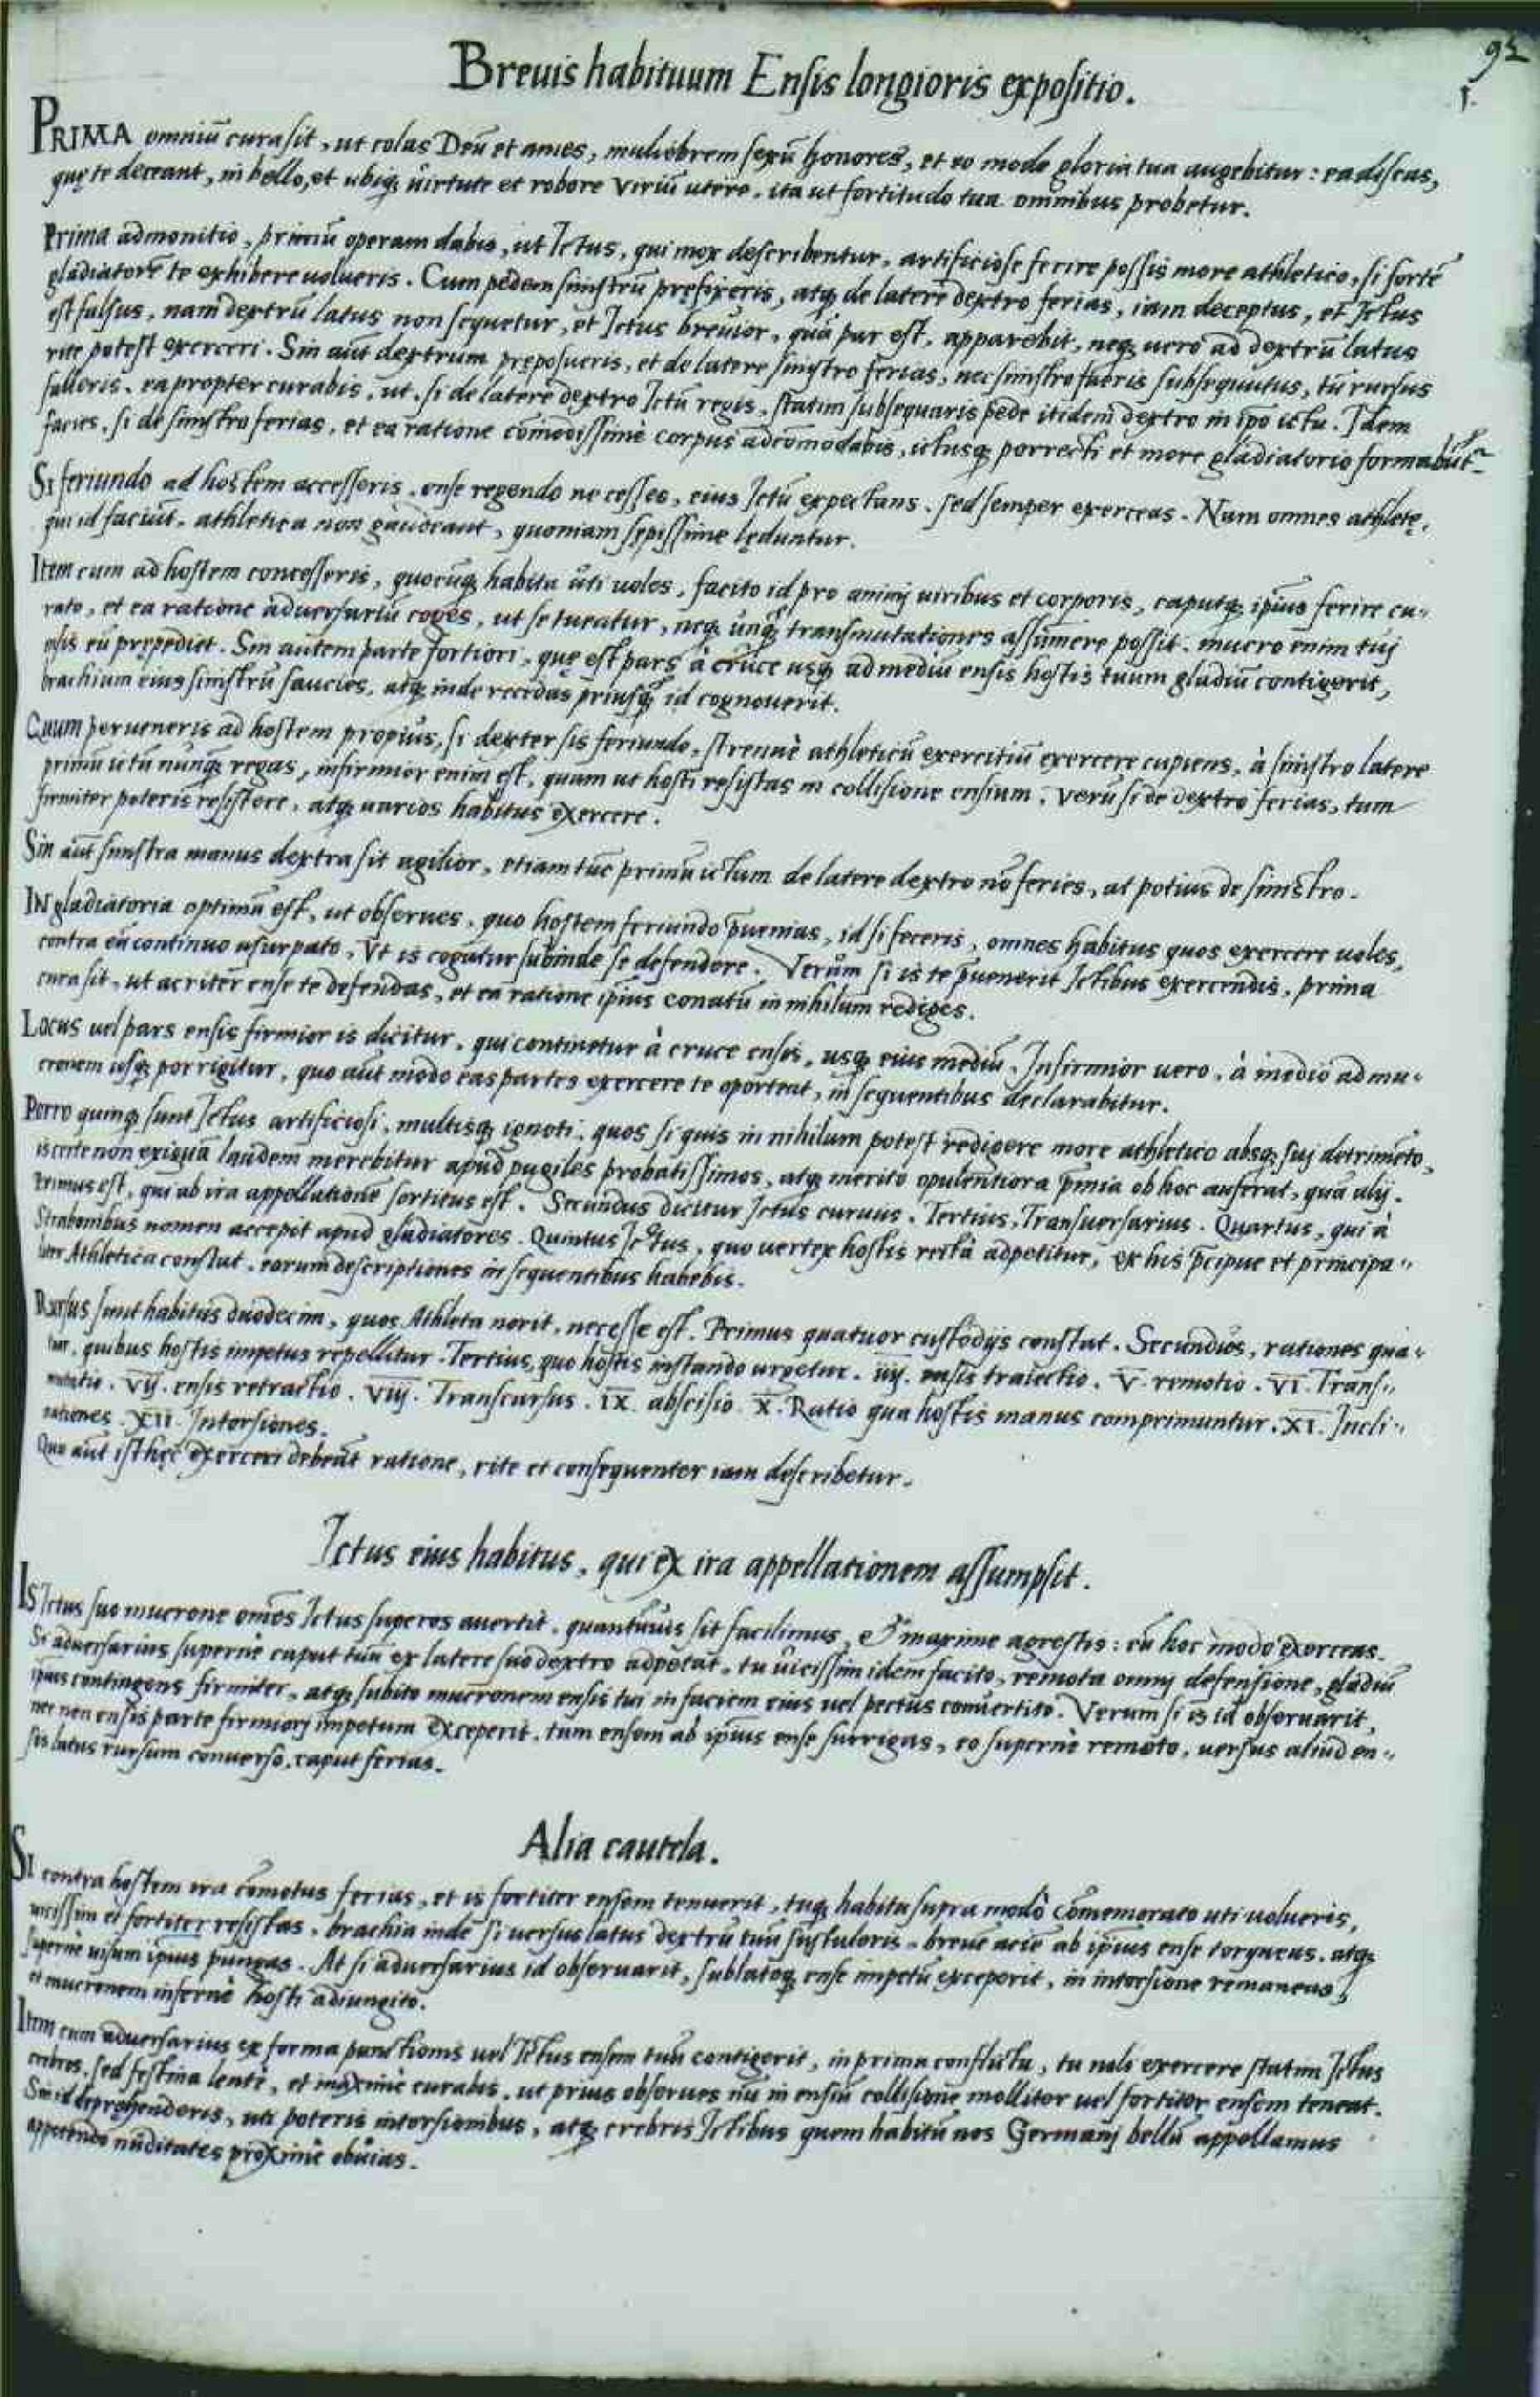 92
Breuis habituum Ensis longioris expositio.
1.
PRIMA omniū cura sit, ut colas Deū et ames, muliebrem sexū honores, et eo modo gloria tua augebitur: ea discas,
quę te deceant, in bello, et ubiq; uirtute et robore viriū utere, ita ut fortitudo tua omnibus probetur.
Prima admonitio, primū operam dabis, ut Ictus, qui mox describentur, artificiose ferire possis more athletico, si forte
gladiatorē te exhibere uolueris. Cum pedem sinistrū pręfixeris, atq; de latere dextro ferias, iam deceptus, et Ictus
est falsus, nam dextrū latus non sequetur, et Ictus breuior, quā par est, apparebit, neq; uero ad dextrū latus
rite potest exerceri. Sin aūt dextrum pręposueris, et de latere sinistro ferias, nec sinistro fueris subsequutus, tū rursus
falleris. ea propter curabis, ut, si de latere dextro Ictū regis, statim subsequaris pede itidem dextro in ipo ictu. Idem
facies, si de sinistro ferias, et ea ratione cōmodissime corpus adcōmodabis, ictusq; porrecti et more gladiatorio formabūtr
Si feriundo ad hostem accesseris, ense regendo ne cesses, eius Ictū expectans, sed semper exerceas. Nam omnes athletę,
qui id faciūt, athletica non gaudeant, quoniam sępissime lęduntur.
Item cum ad hostem concesseris, quocūq; habitu uti uoles, facito id pro animj uiribus et corporis, caputq; ipius ferire cu-
rato, et ea ratione aduersariū coges, ut se tueatur, neq; unq; transmutationes assumere possit. mucro enim tuj
ēsis eū prępediet. Sin autem parte fortiori, quę est pars à cruce usq; ad mediū ensis hostis tuum gladiū contigerit,
brachium eius sinistrū saucies, atq; inde recedas priusq; id cognouerit.
Quum perueneris ad hostem propius, si dexter sis feriundo, strenuè athleticū exercitiū exercere cupiens, à sinistro latere
primū ictū nunq; regas, infirmior enim est, quam ut hosti resistas in collisione ensium. verū si de dextro ferias, tum
firmiter poteris resistere, atq; uarios habitus exercere.
Sin aūt sinistra manus dextra sit agilior, etiam tūc primū ictum de latere dextro nō feries, at potius de sinistro.
IN gladiatoria optimū est, ut obserues, quo hostem feriundo p̄uenias, id si feceris, omnes habitus quos exercere uoles,
contra eū continuo usurpato, Vt is cogatur subinde se defendere. Verùm si is te p̄uenerit Ictibus exercendis, prima
cura sit, ut acriter ense te defendas, et ea ratione ipius conatū in nihilum rediges.
Locus uel pars ensis firmior is dicitur, qui continetur à cruce ensis, usq; eius mediū. Infirmior uero, à medio ad mu-
cronem usq; porrigitur, quo aūt modo eas partes exercere te oporteat, in sequentibus declarabitur.
Porro quinq; sunt Ictus artificiosi, multisq; ignoti, quos si quis in nihilum potest redigere more athletico absq; suj detrimēto,
is certe non exiguā laudem merebitur apud pugiles probatissimos, atq; merito opulentiora p̄mia ob hoc auferat, quā alij.
Primus est, qui ab ira appellationē sortitus est. Secundus dicitur Ictus curuus. Tertius, Transuersarius. Quartus, qui à
Strabonibus nomen accepit apud gladiatores. Quintus Ictus, quo uertex hostis rectà adpetitur, ex his p̄cipue et principa-
liter Athletica constat, earum descriptiones in sequentibus habebis.
Rursus sunt habitus duodecim, quos Athleta norit, necesse est. Primus quatuor custodijs constat. Secundus, rationes qua-
tuor, quibus hostis impetus repellitur. Tertius, quo hostis instando urgetur. iiij. ensis traiectio. V. remotio. VI. Trans-
mutatio. Vij. ensis retractio. Viij. Transcursus. IX. abscisio. X. Ratio qua hostis manus comprimuntur. XI. Incli-
nationes. XII. Intorsiones.
Quo aūt isthęc exerceri debeāt ratione, rite et consequenter iam describetur.
Ictus eius habitus, qui ex ira appellationem assumpsit.
IS Ictus suo mucrone omēs Ictus superos auertit, quantūuis sit facilimus, & maxime agrestis: eū hoc modo exerceas.
Si aduersarius supernè caput tuū ex latere suo dextro adpetat, tu uicissim idem facito, remota omnj defensione, gladiū
ipius contingens firmiter, atq; subito mucronem ensis tui in faciem eius uel pectus conuertito. Verum si is id obseruarit,
nec non ensis parte firmiorj impetum exceperit, tum ensem ab ipius ense surrigas, eo supernè remoto, uersus aliud en-
sis latus rursum conuerso, caput ferias.
Alia cautela.
SI contra hostem ira cōmotus ferias, et is fortiter ensem tenuerit, tuq; habitu supra modò cōmemorato uti uolueris,
uicissim ei fortiter resistas, brachia inde si uersus latus dextrū tuū sustuleris, breuē aciē ab ipius ense torqueas, atq;
supernè uisum ipius pungas. At si aduersarius id obseruarit, sublatoq; ense impetū exceperit, in intorsione remaneas,
et mucronem infernè hosti adiungito.
Item cum aduersarius ex forma punctionis uel Ictus ensem tuū contigerit, in prima conflictu, tu noli exercere statim Ictus
crebros, sed festina lentè, et maximè curabis, ut prius obserues nū in ensiū collisione molliter uel fortiter ensem teneat.
Sin id deprehenderis, uti poteris intorsionibus, atq; crebris Ictibus quem habitū nos Germanj bellū appellamus
appetendo nuditates proximè obuias.